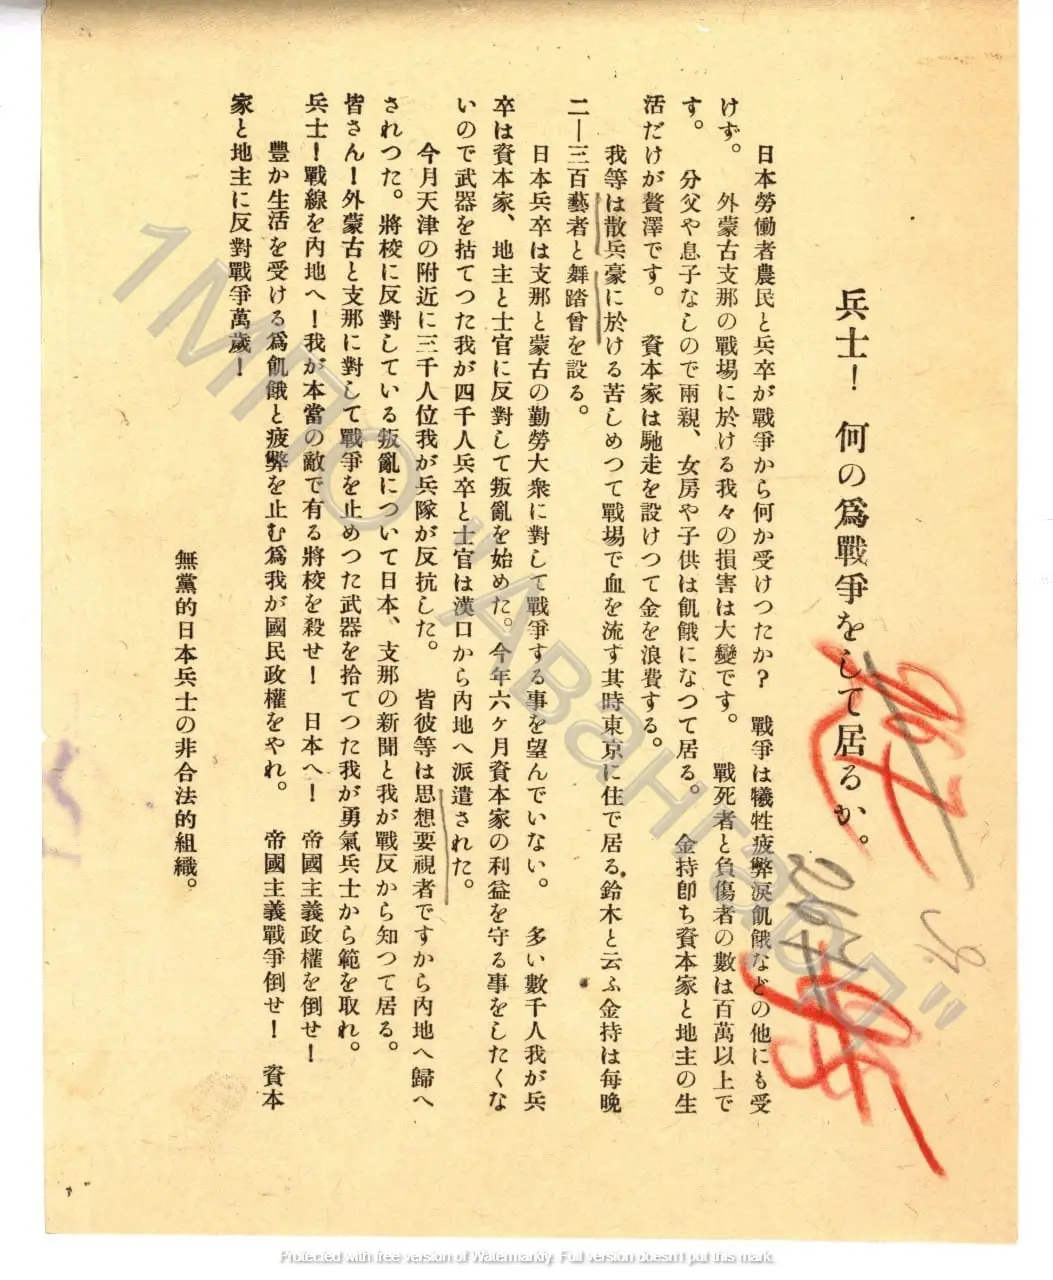 兵士！　何の爲戰爭をして居るか。
日本勞働者農民と兵卒が戰爭から何か受けつたか？　戰爭は犧牲疲弊淚飢餓などの他にも受
けず。　外蒙古支那の戰場に於ける我々の損害は大變です。　戰死者と負傷者の數は百萬以上で
す。　分父や息子なしので兩親、女房や子供は飢餓になつて居る。　金持卽ち資本家と地主の生
活だけが贅澤です。　資本家は馳走を設けつて金を浪費する。
我等は散兵豪に於ける苦しめつて戰場で血を流す其時東京に住で居る鈴木と云ふ金持は每晚
二―三百藝者と舞踏曾を設る。
日本兵卒は支那と蒙古の勤勞大衆に對して戰爭する事を望んでいない。　多い數千人我が兵
卒は資本家、地主と士官に反對して叛亂を始めた。今年六ケ月資本家の利益を守る事をしたくな
いので武器を拈てつた我が四千人兵卒と士官は漢口から內地へ派遣された。
今月天津の附近に三千人位我が兵隊が反抗した。　皆彼等は思想要視者ですから內地へ歸へ
されつた。將校に反對している叛亂について日本、支那の新聞と我が戰反から知つて居る。
皆さん！外蒙古と支那に對して戰爭を止めつた武器を拾てつた我が勇氣兵士から範を取れ。
兵士！戰線を內地へ！我が本當の敵で有る將校を殺せ！　日本へ！　帝國主義政權を倒せ！
豐か生活を受ける爲飢餓と疲弊を止む爲我が國民政權をやれ。　帝國主義戰爭倒せ！　資本
家と地主に反對戰爭萬歲！
無黨的日本兵士の非合法的組織。
1МПО "Вангард"
Protected with free version of Watermarkly. Full version doesn't put this mark.